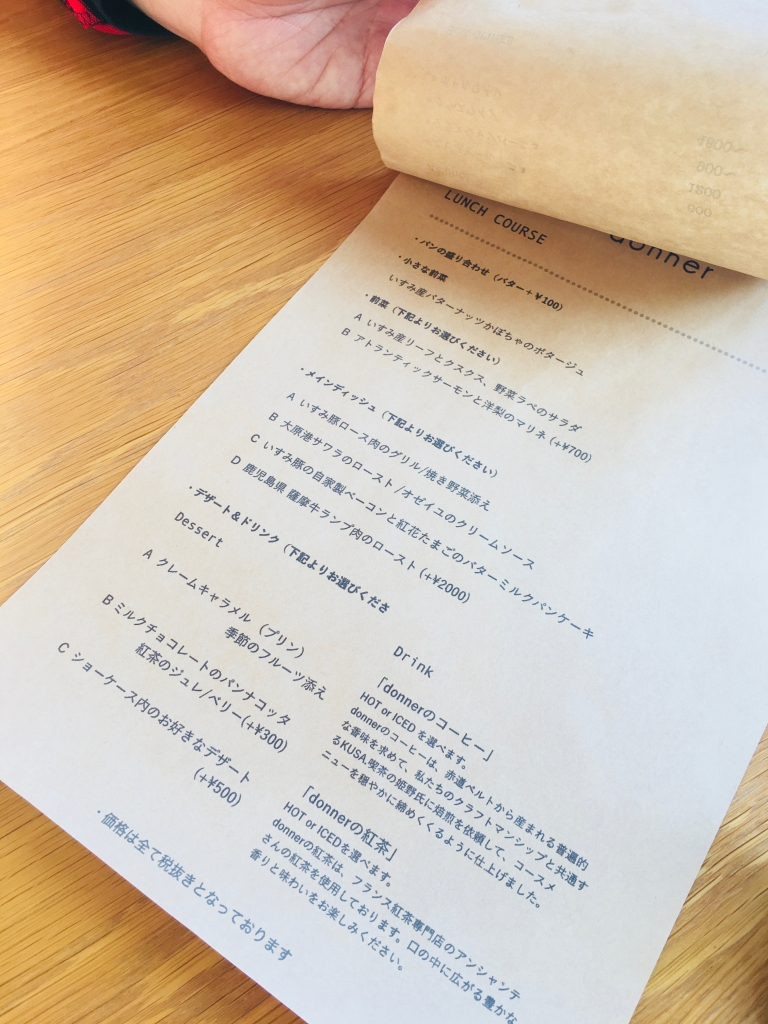 LUNCH COURSE
donner
・パンの盛り合わせ（バター＋¥100）
・小さな前菜
いすみ産バターナッツかぼちゃのポタージュ
・前菜（下記よりお選びください）
A いすみ産リーフとクスクス、野菜ラペのサラダ
B アトランティックサーモンと洋梨のマリネ(+¥700)
・メインディッシュ（下記よりお選びください）
A いすみ豚ロース肉のグリル/焼き野菜添え
B 大原港サワラのロースト/オゼイユのクリームソース
C いすみ豚の自家製ベーコンと紅花たまごのバターミルクパンケーキ
D 鹿児島県 薩摩牛ランプ肉のロースト(+¥2000)
・デザート&ドリンク（下記よりお選びくださ
Dessert
A クレームキャラメル（プリン）
季節のフルーツ添え
B ミルクチョコレートのパンナコッタ
紅茶のジュレ/ベリー(+¥300)
C ショーケース内のお好きなデザート
(+¥500)
Drink
「donnerのコーヒー」
HOT or ICED を選べます。
donnerのコーヒーは、赤道ベルトから産まれる普遍的
な香味を求めて、私たちのクラフトマンシップと共通す
るKUSA.喫茶の姫野氏に焙煎を依頼して、コースメ
ニューを穏やかに締めくくるように仕上げました。
「donnerの紅茶」
HOT or ICEDを選べます。
donnerの紅茶は、フランス紅茶専門店のアンシャンテ
さんの紅茶を使用しております。口の中に広がる豊かな
香りと味わいをお楽しみください。
・価格は全て税抜きとなっております